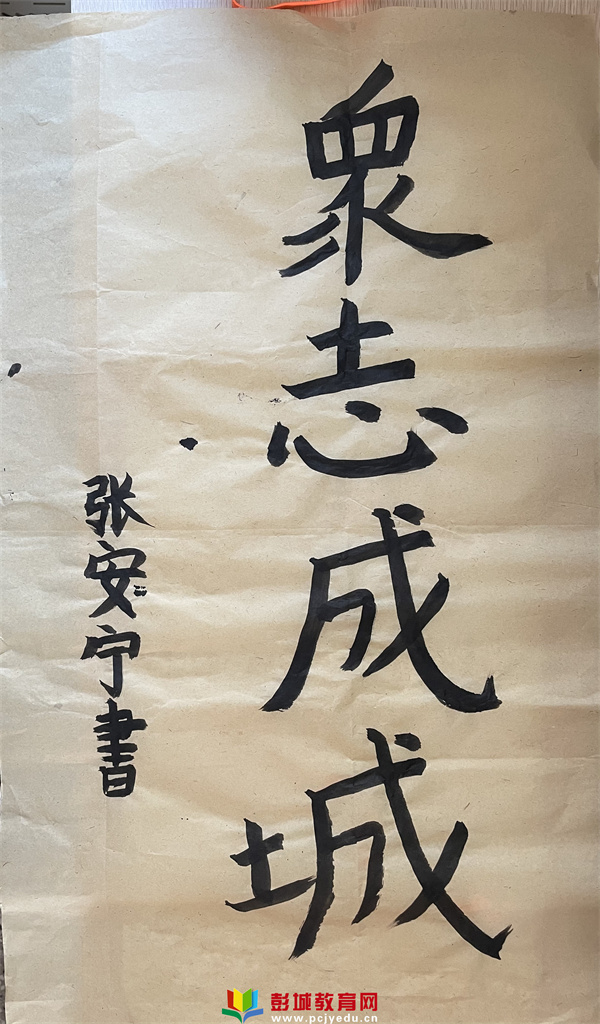 眾志成城
张安宁書
彭城教育网
www.pcjyedu.cn